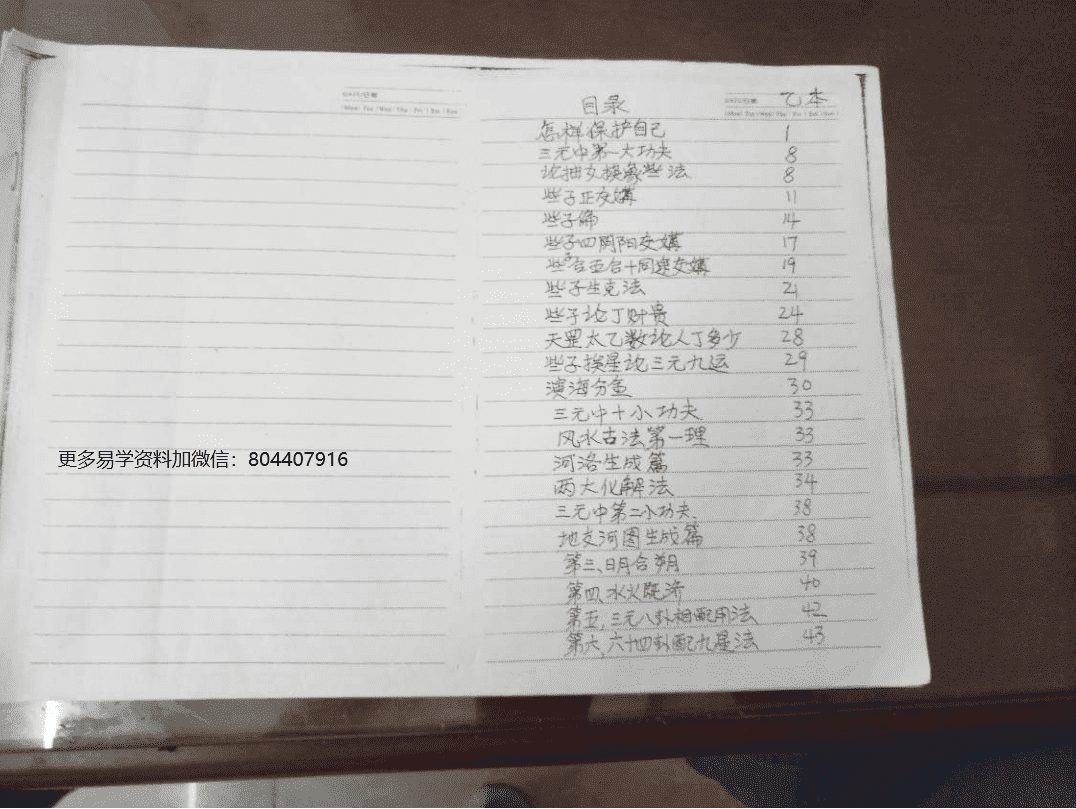 乙本
目录
怎样保护自己 1
三元中第一大功夫 8
论抽爻换象些法 8
些子正交媾 11
些子 14
些子四阴阳交媾 17
些子合五合十同途交媾 19
些子生克法 21
些子论丁财贵 24
天罡太乙数论人丁多少 28
些子挨星论三元九运 29
演海分鱼 30
三元中十小功夫 33
风水古法第一理 33
河洛生成篇 33
两大化解法 34
三元中第二小功夫 38
地支河图生成篇 38
第三、日月合朔 39
第四、水火既济 40
第五、三元八卦相配用法 42
第六、六十四卦配九星法 43
更多易学资料加微信：804407916